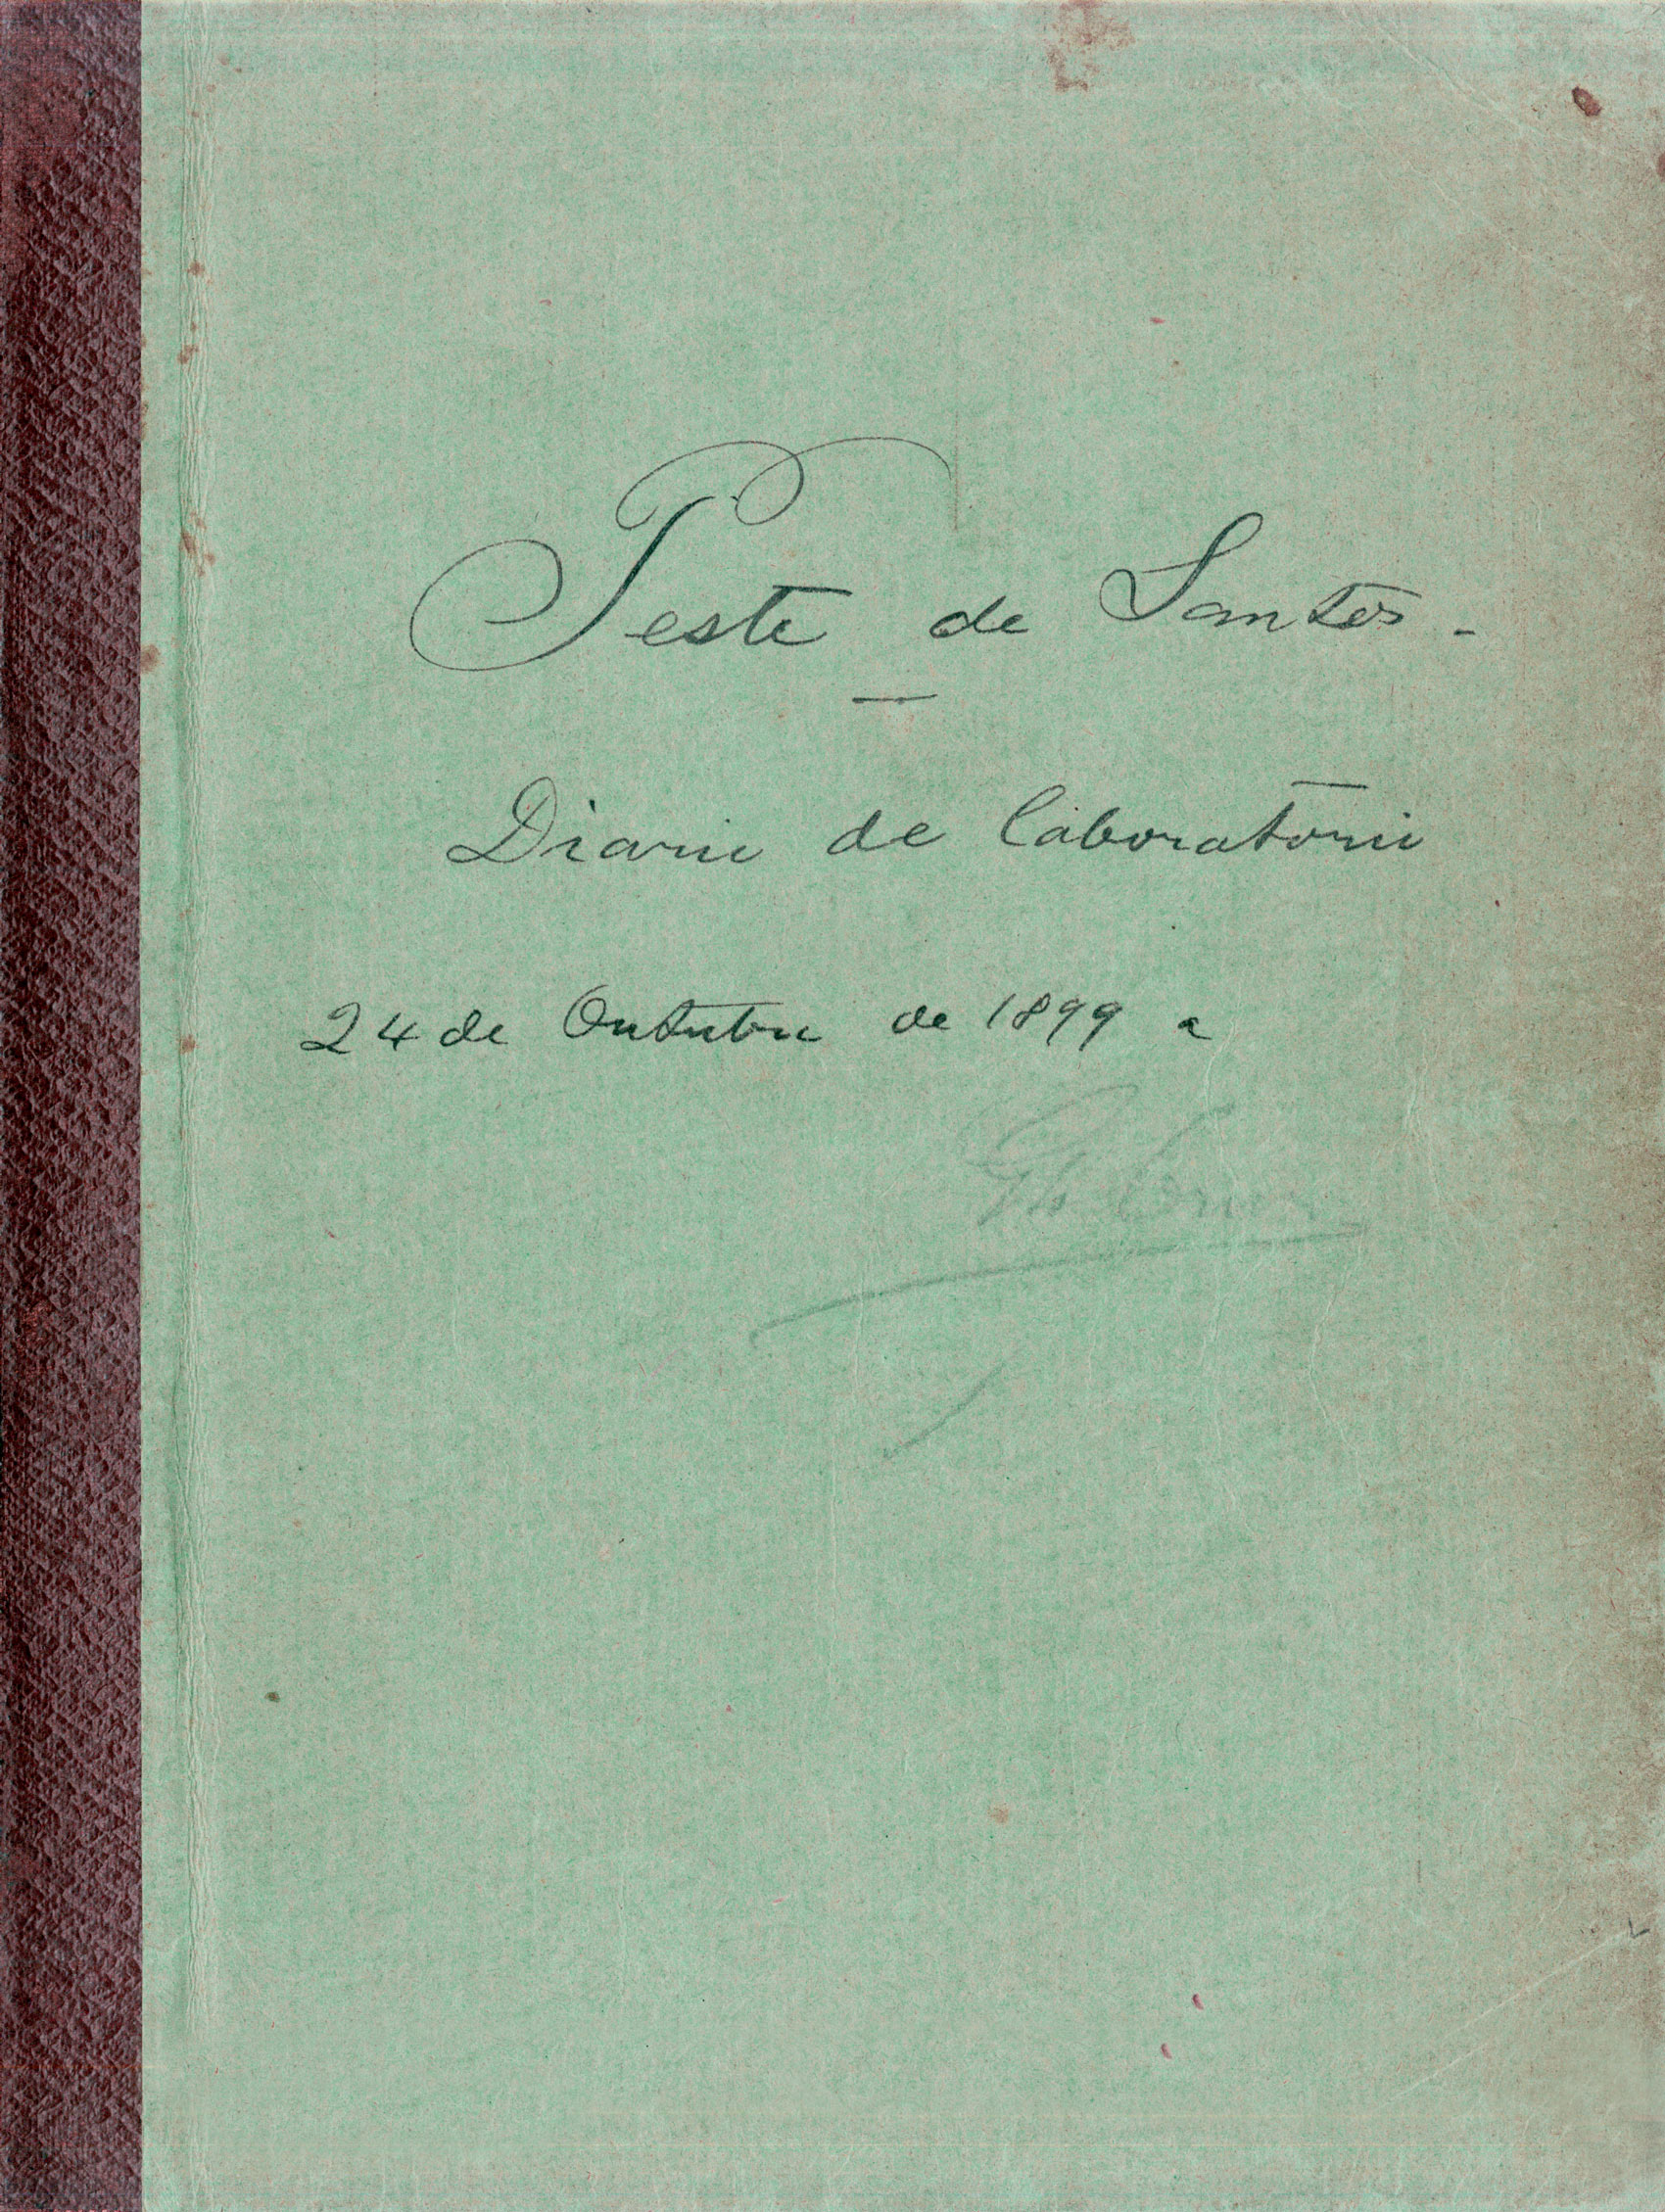 Peste de Santos -
Diario de laboratorio
24 de Outubro de 1899 a